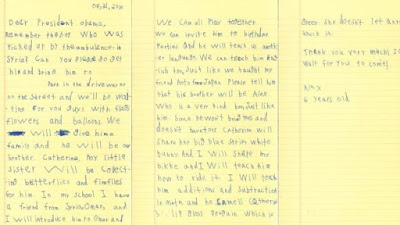 Dear President Obama,
remember the boy who was
picked up by the ambulance in
Syria? Can you please go get
him and bring him to
Park in the driveway or
on the street and we'll be wait-
ing for you guys with flags
flowers and balloons. We
will give him a
family and he will be our
brother. Catherine, my little
sister will be collect-
ing butterflies and fireflies
for him. In my school I have
a friend from Syria, Omar, and
I will introduce him to Omar and
We can all play together.
We can invite him to birthday
parties and he will teach us anoth-
er language. We can teach him
english too, just like we taught my
friend Aoto from Japan. Please tell
him that his brother will be Alex
who is a very kind boy, just like
him. Since he won't bring toys and
doesn't have toys Catherine will
share her big blue stripy white
bunny. And I will share my
bike and I will teach him
how to ride it. I will teach
him additions and subtractions
in math and he smell Catherine
's lip gloss penguin which is
green. She doesn't let anyone
touch it.
Thank you very much! I can't
wait for you to come!
Alex
6 years old